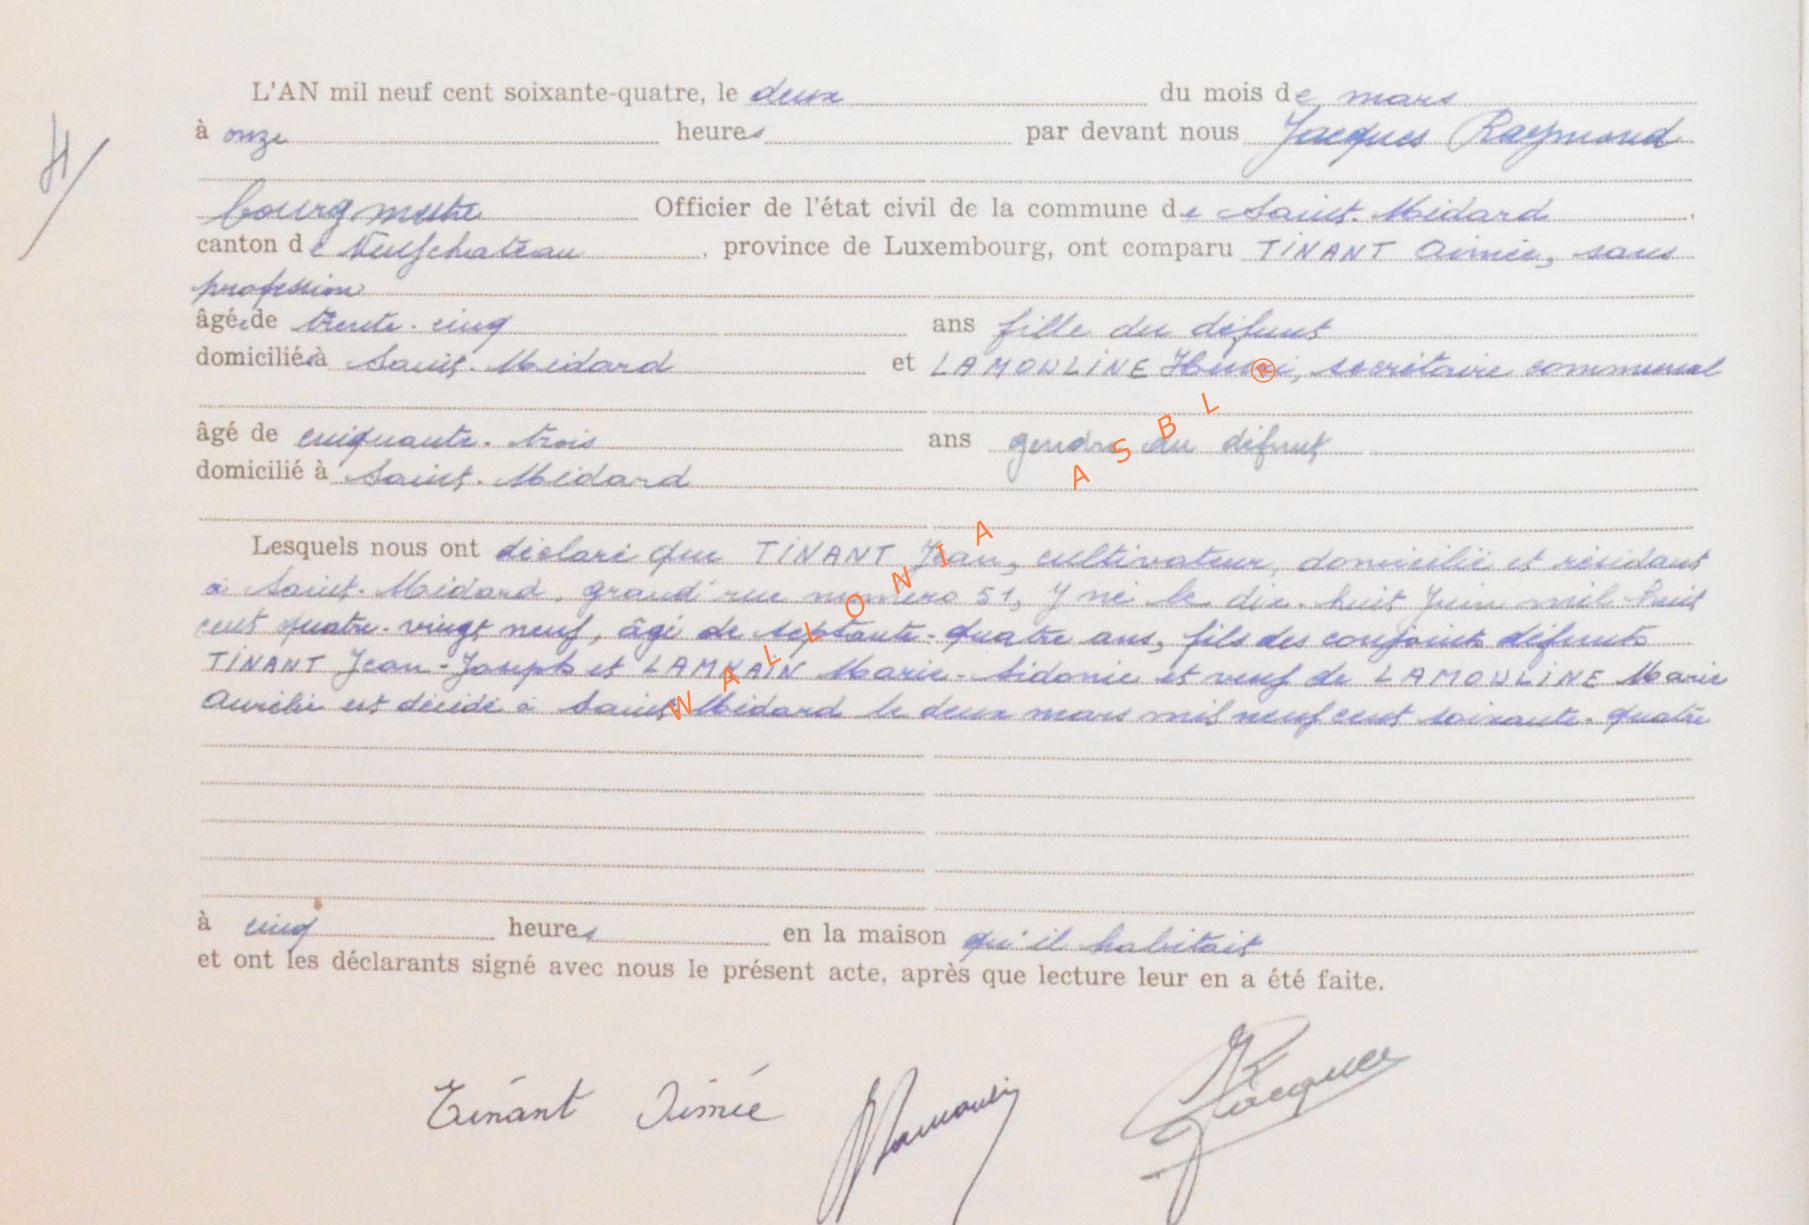 L'AN mil neuf cent soixante-quatre, le deux du mois de mars
à onze heures par devant nous Jacques Raymond
4/
bourgmestre Officier de l'état civil de la commune de Saint-Médard,
canton de Neufchateau, province de Luxembourg, ont comparu TINANT Aimée, sans
profession
âgée de trente-cinq ans fille du défunt
domiciliée à Saint-Médard et LAMOULINE Henri, secrétaire communal
âgé de cinquante-trois ans gendre du défunt
domicilié à Saint-Médard
Lesquels nous ont déclaré que TINANT Jean, cultivateur, domicilié et résidant
à Saint-Médard, grand'rue numéro 51, y né le dix-huit juin mil huit
cent quatre-vingt neuf, âgé de septante-quatre ans, fils des conjoints défunts
TINANT Jean-Joseph et Marie-Sidonie et veuf de LAMOULINE Marie
Aurélie est décédé à Saint-Médard le deux mars mil neuf cent soixante-quatre
à cinq heures en la maison qu'il habitait
et ont les déclarants signé avec nous le présent acte, après que lecture leur en a été faite.
Tinant Aimée Lamouline R Jacques
WALLONIA ASBL ®